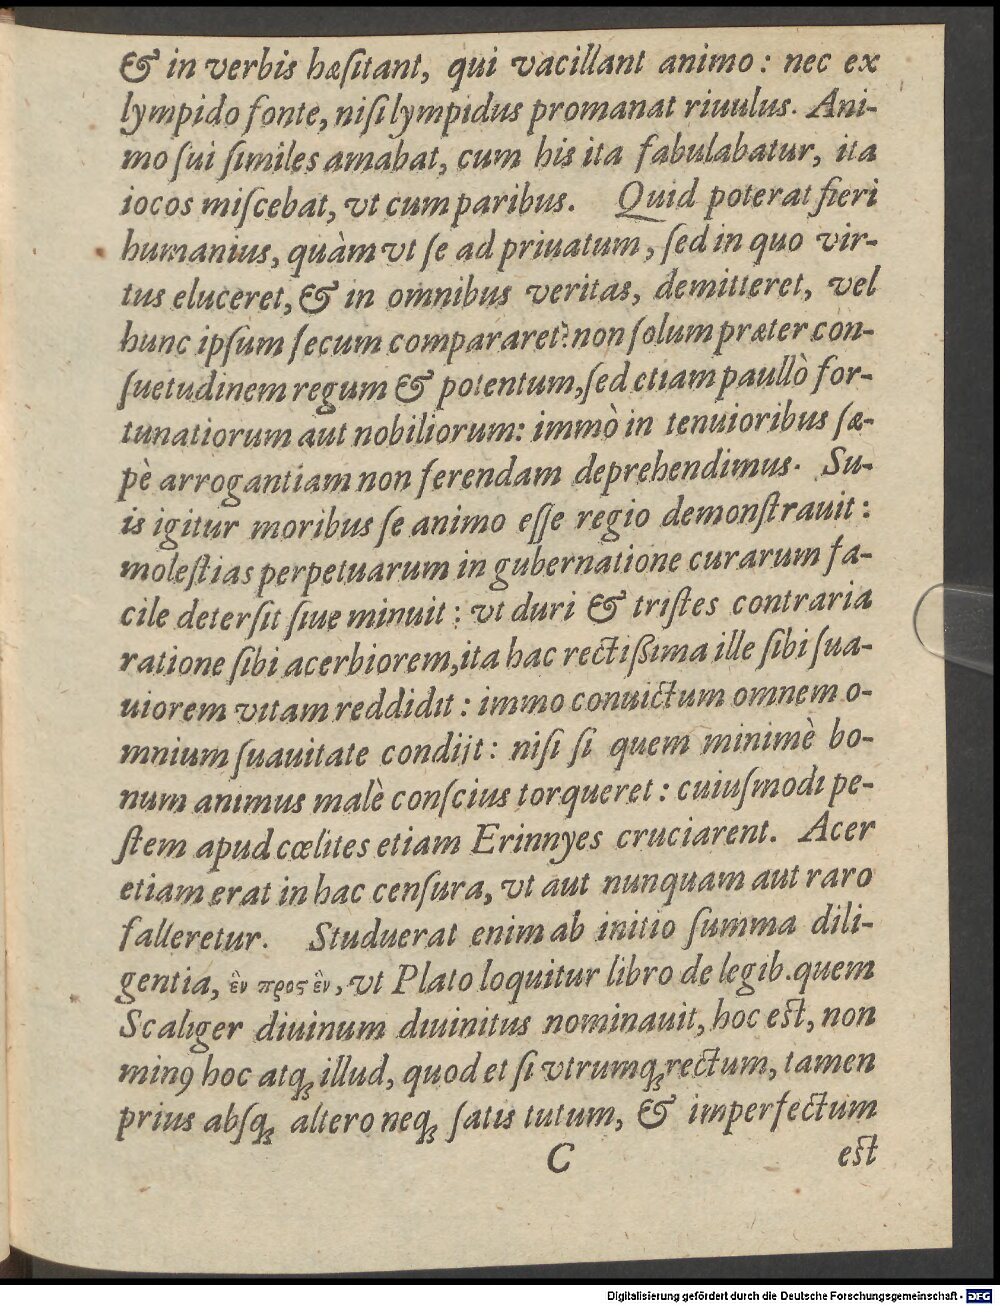 & in verbis hæſitant, qui vacillant animo: nec ex
lympido fonte, niſi lympidus promanat riuulus. Ani-
mo ſui ſimiles amabat, cum his ita fabulabatur, ita
iocos miſcebat, vt cum paribus. Quid poterat fieri
humanius, quàm vt ſe ad priuatum, ſed in quo vir-
tus eluceret, & in omnibus veritas, demitteret, vel
hunc ipſum ſecum compararet? non ſolum præter con-
ſuetudinem regum & potentum, ſed etiam paullò for-
tunatiorum aut nobiliorum: immò in tenuioribus ſæ-
pè arrogantiam non ferendam deprehendimus. Su-
is igitur moribus ſe animo eſſe regio demonſtrauit:
moleſtias perpetuarum in gubernatione curarum fa-
cile deterſit ſiue minuit: vt duri & triſtes contraria
ratione ſibi acerbiorem, ita hac rectiſsima ille ſibi ſua-
uiorem vitam reddidit: immo conuictum omnem o-
mnium ſuauitate condijt: niſi ſi quem minimè bo-
num animus malè conſcius torqueret: cuiuſmodi pe-
ſtem apud cœlites etiam Erinnyes cruciarent. Acer
etiam erat in hac cenſura, vt aut nunquam aut raro
falleretur. Studuerat enim ab initio ſumma dili-
gentia, ἓν προς ἓν, vt Plato loquitur libro de legib. quem
Scaliger diuinum diuinitus nominauit, hoc eſt, non
minꝰ hoc atqꝫ illud, quod et ſi vtrumqꝫ rectum, tamen
prius abſqꝫ altero neqꝫ ſatis tutum, & imperfectum
C eſt
Digitalisierung gefördert durch die Deutsche Forschungsgemeinschaft - DFG